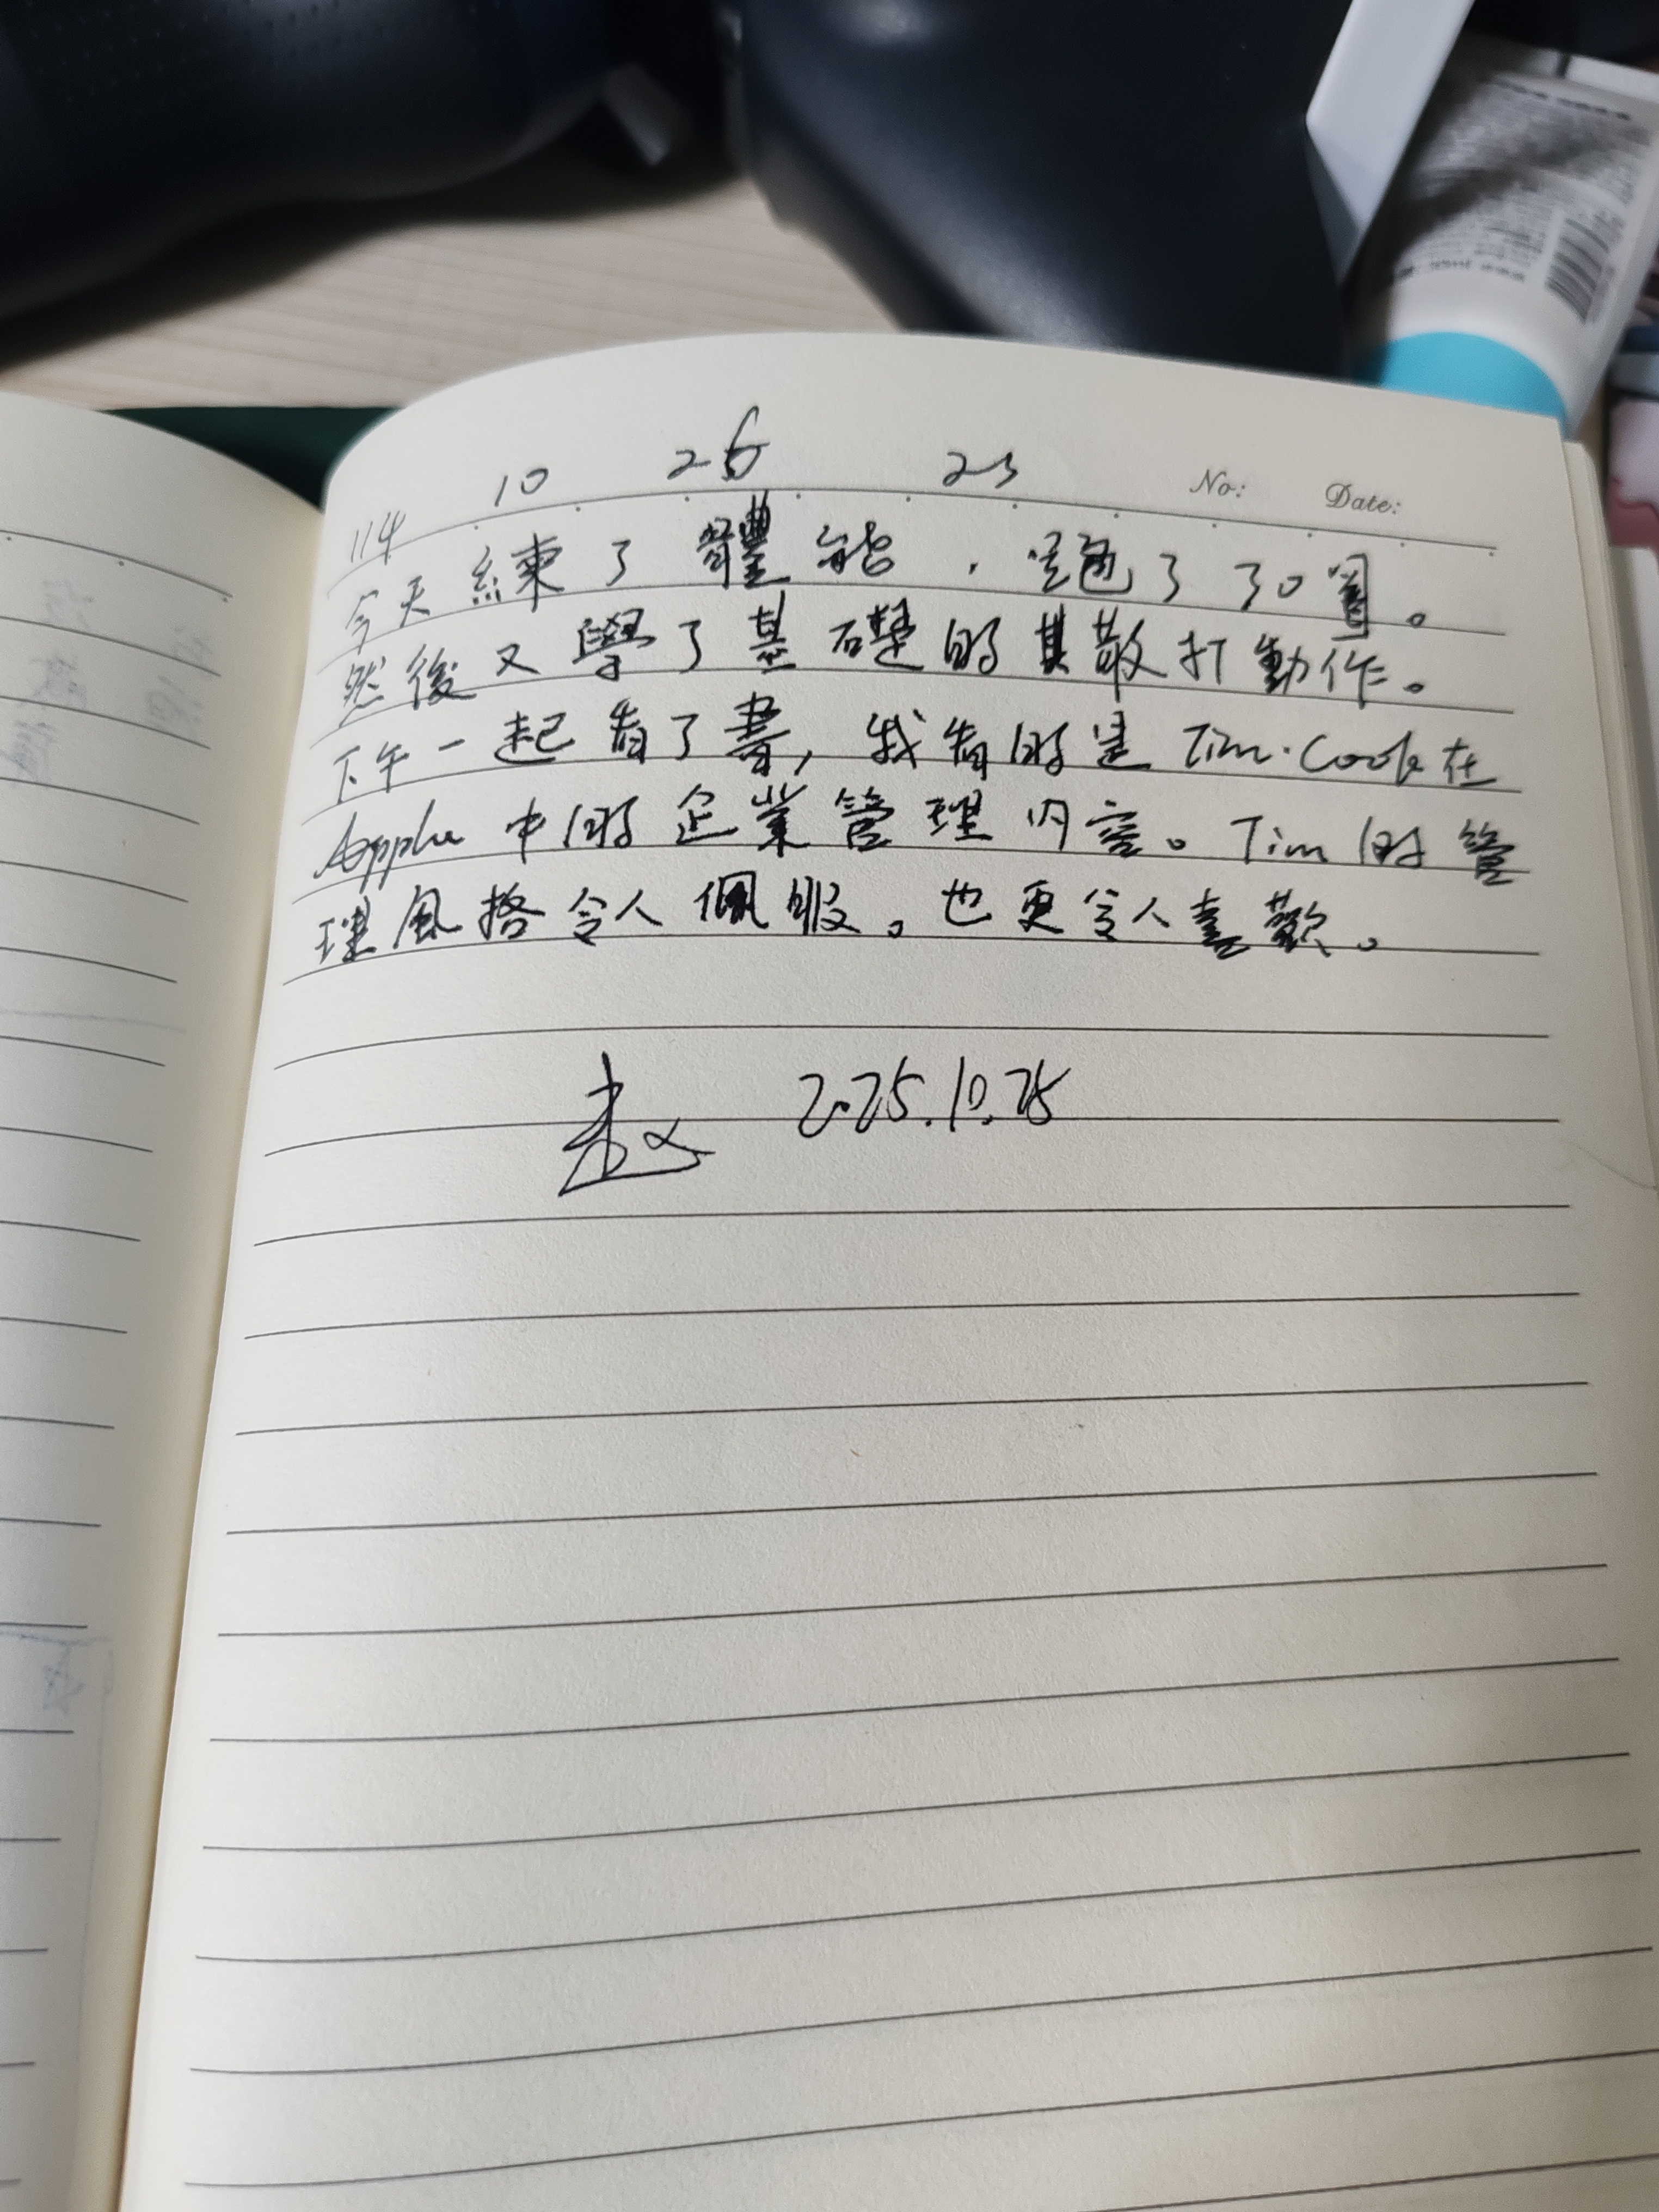 10 26 23 No: Date:
114
今天練了體能，跑了30圈。
然後又學了基礎的散打動作。
下午一起看了書，我看的是Tim·Cook在
Apple中的企業管理內容。Tim的管
理風格令人佩服。也更令人喜歡。
趙 2025.10.25